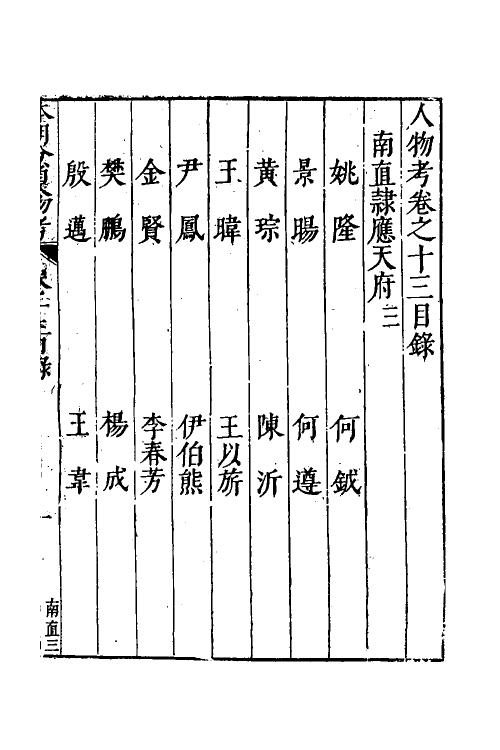 人物考卷之十三目錄
南直隷應天府三
姚隆 何鉞
景暘 何遵
黃琮 陳沂
王暐 王以旂
尹鳳 伊伯熊
金賢 李春芳
樊鵬 楊成
殷邁 王韋
南直三